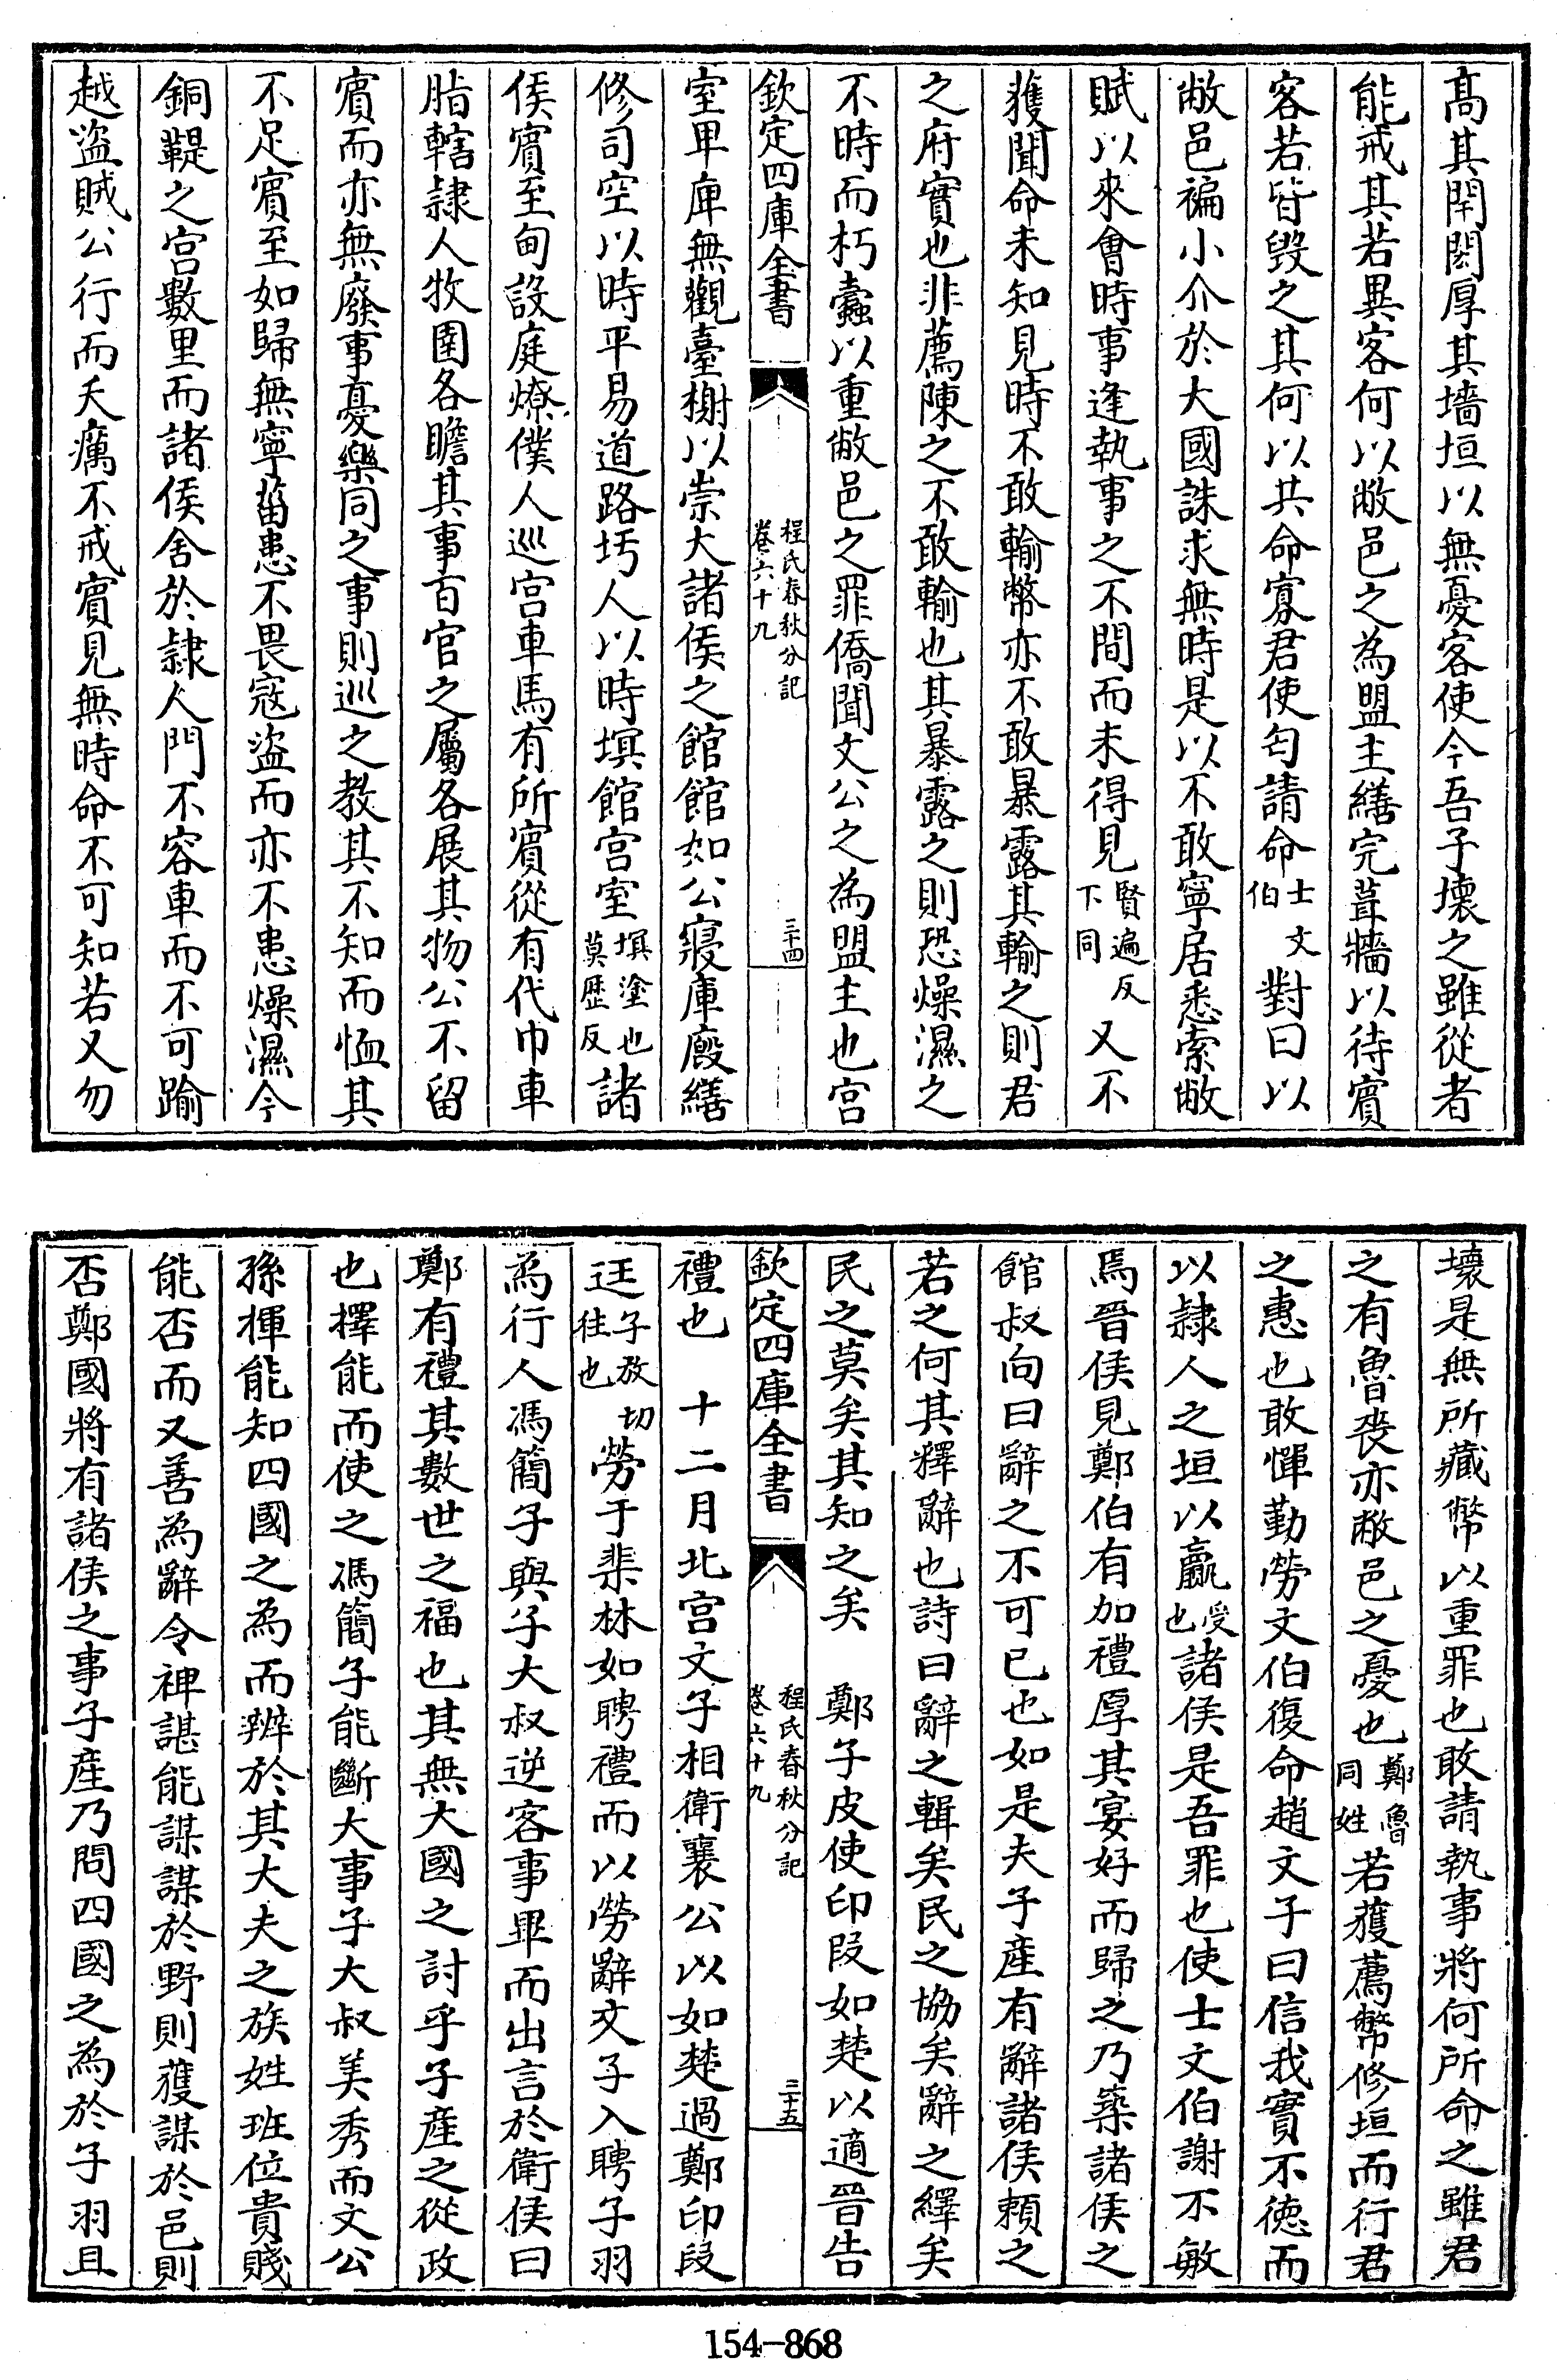 髙其閈閎厚其墻垣以無憂客使今吾子壞之雖從者
能戒其若異客何以敝邑之為盟主繕完葺牆以待賓
客若皆毀之其何以共命寡君使匄請命士文伯對曰以
敝邑褊小介於大國誅求無時是以不敢寧居悉索敝
賦以來會時事逢執事之不間而未得見賢遍反下同又不
獲聞命未知見時不敢輸幣亦不敢暴露其輸之則君
之府實也非薦陳之不敢輸也其暴露之則恐燥濕之
不時而朽蠧以重敝邑之罪僑聞文公之為盟主也宫
欽定四庫全書
程氏春秋分記
卷六十九
三十四
室卑庳無觀臺榭以崇大諸侯之館館如公寢庫廏繕
修司空以時平易道路圬人以時塓館宫室塓塗也莫歴反諸
侯賓至甸設庭燎僕人巡宫車馬有所賓從有代巾車
脂轄隷人牧圉各瞻其事百官之屬各展其物公不留
賓而亦無廢事憂樂同之事則巡之教其不知而恤其
不足賓至如歸無寧菑患不畏寇盜而亦不患燥濕今
銅鞮之宫數里而諸侯舍於隷人門不容車而不可踰
越盜賊公行而夭癘不戒賓見無時命不可知若又勿
壞是無所藏幣以重罪也敢請執事將何所命之雖君
之有魯喪亦敝邑之憂也鄭魯同姓若獲薦幣修垣而行君
之惠也敢憚勤勞文伯復命趙文子曰信我實不徳而
以隷人之垣以贏受也諸侯是吾罪也使士文伯謝不敏
焉晉侯見鄭伯有加禮厚其宴好而歸之乃築諸侯之
館叔向曰辭之不可已也如是夫子產有辭諸侯頼之
若之何其釋辭也詩曰辭之輯矣民之協矣辭之繹矣
民之莫矣其知之矣　鄭子皮使印段如楚以適晉告
欽定四庫全書
程氏春秋分記
卷六十九
三十五
禮也　十二月北宫文子相衛襄公以如楚過鄭印段
迋子放切往也勞于棐林如聘禮而以勞辭文子入聘子羽
為行人馮簡子與子大叔逆客事畢而出言於衛侯曰
鄭有禮其數世之福也其無大國之討乎子產之從政
也擇能而使之馮簡子能斷大事子大叔美秀而文公
孫揮能知四國之為而辨於其大夫之族姓班位貴賤
能否而又善為辭令裨諶能謀謀於野則獲謀於邑則
否鄭國將有諸侯之事子產乃問四國之為於子羽且
154-868